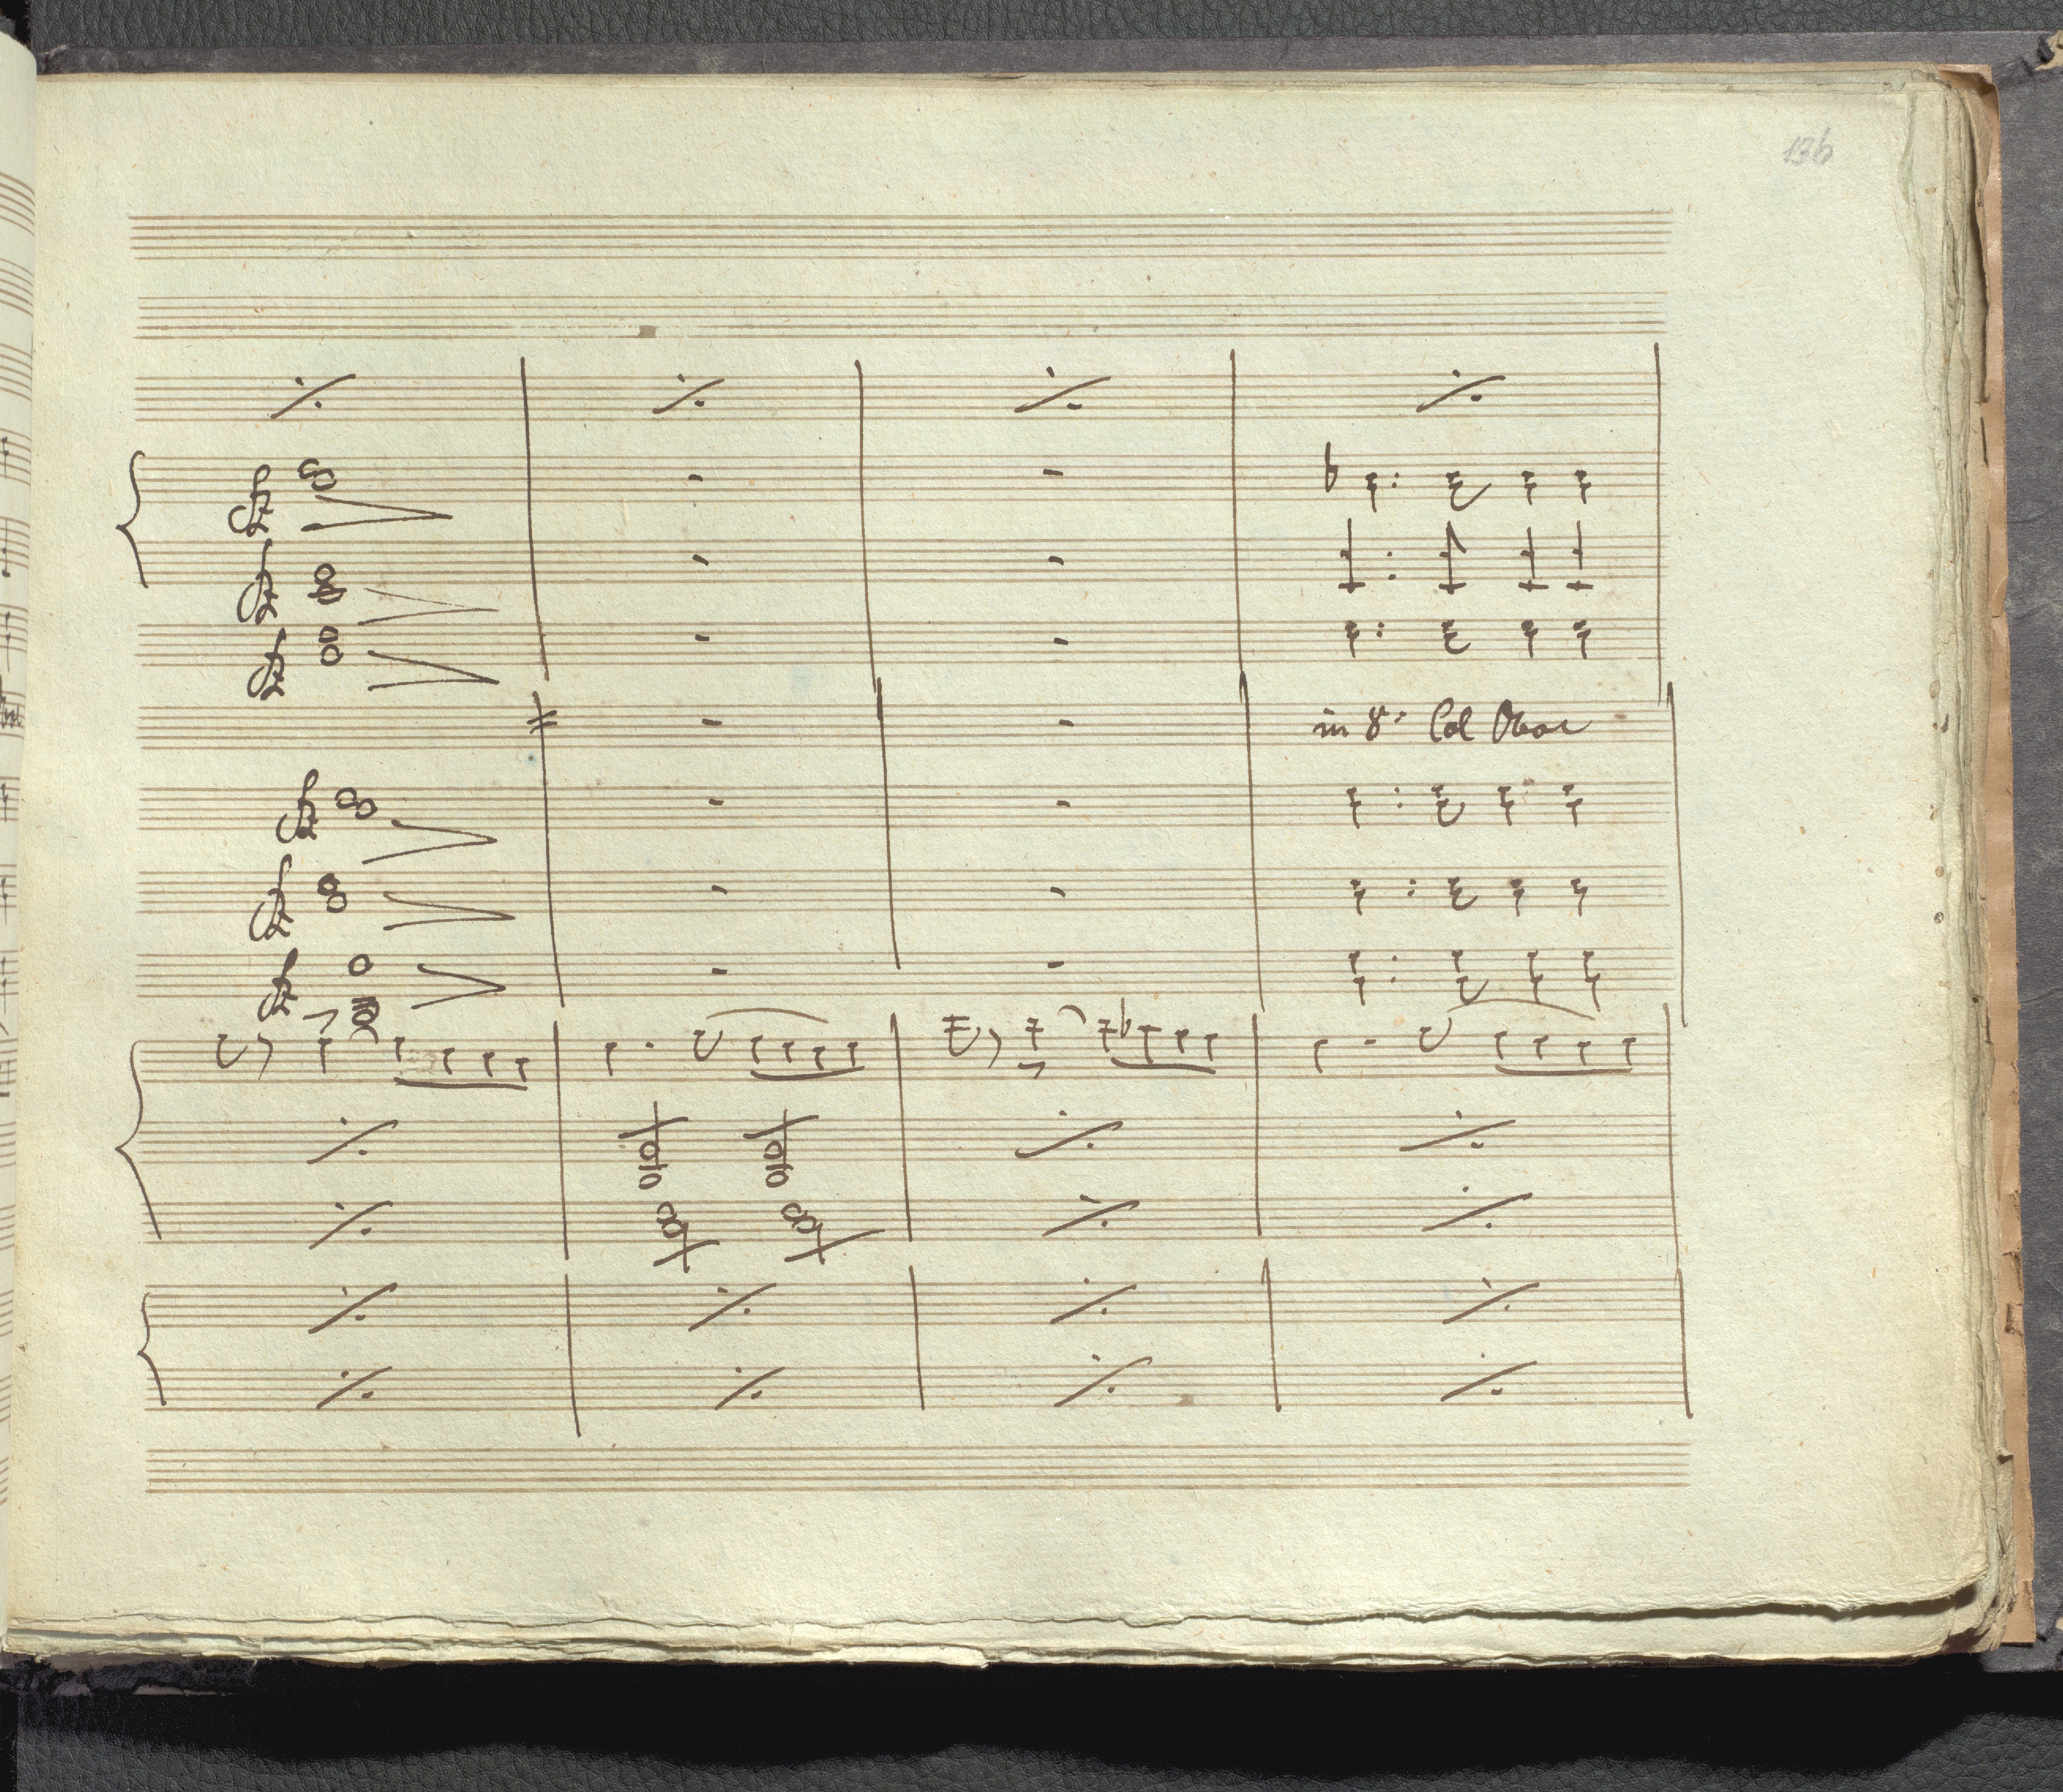 136
in 8ª Col Oboe